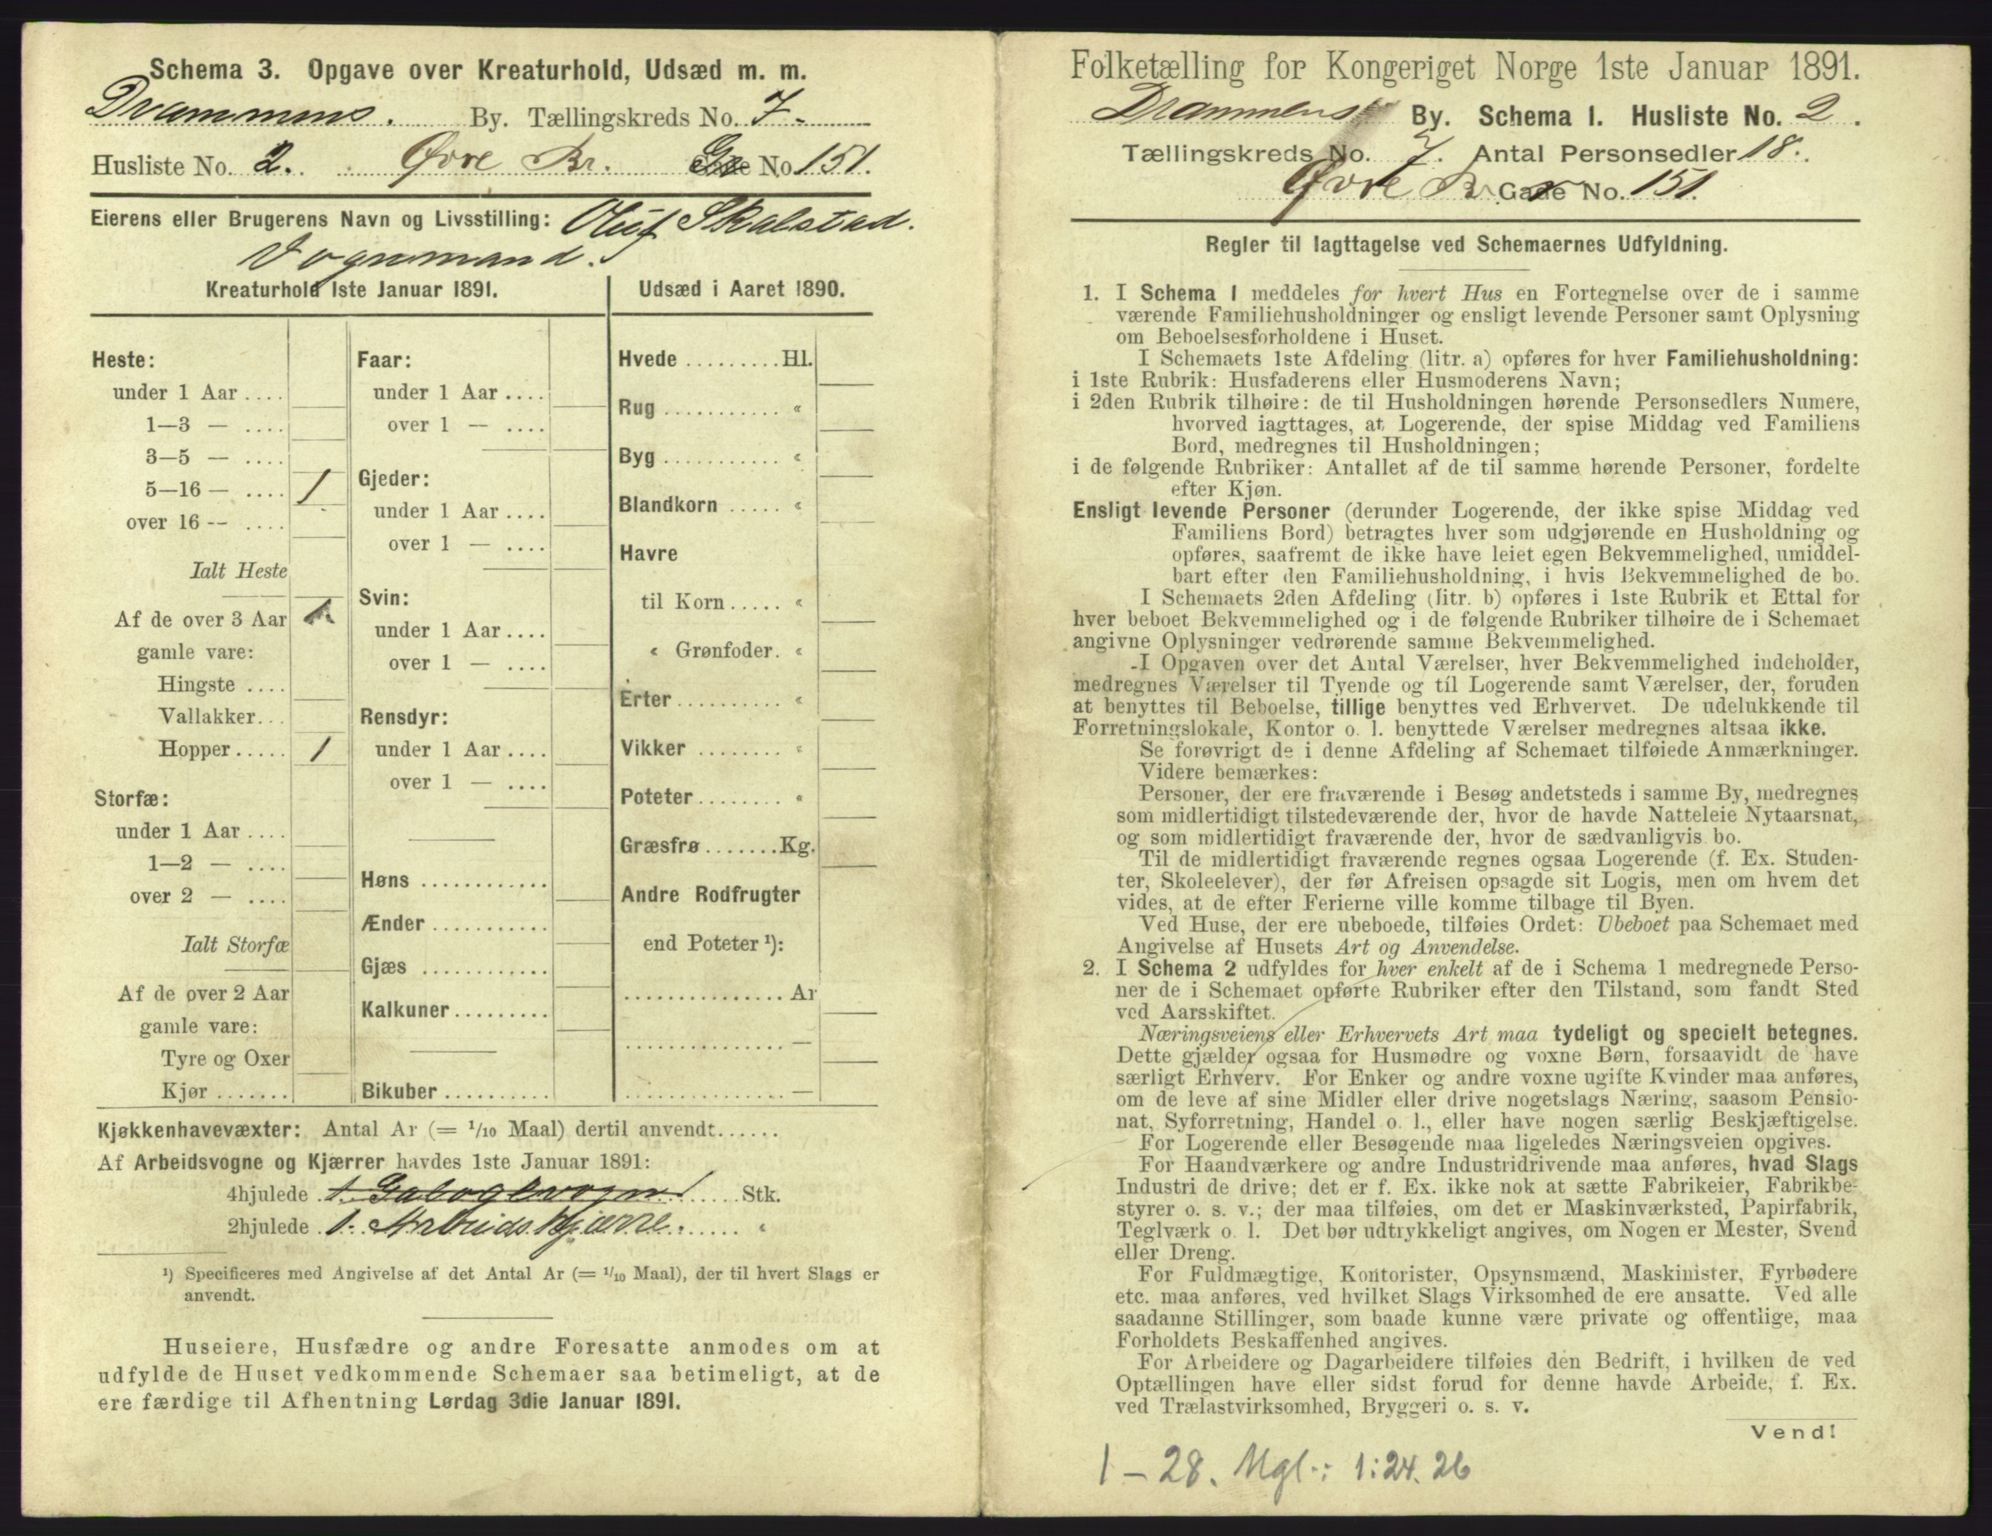 Schema 3. Opgave over Kreaturhold, Udsæd m. m.
Drammens. By. Tællingskreds No. 7.
Husliste No. 2. Øvre Br. Gade No. 151.
Eierens eller Brugerens Navn og Livsstilling: Oluf Skalstad.
Vognmand.
Kreaturhold 1ste Januar 1891.
Heste:
under 1 Aar ....
1—3 — ....
3—5 — ....
5—16 — .... 1
over 16 -- ....
Ialt Heste
Af de over 3 Aar
gamle vare:
Hingste ....
Vallakker...
Hopper..... 1
Storfæ:
under 1 Aar ....
1—2 — ....
over 2 — ....
Ialt Storfæ
Af de over 2 Aar
gamle vare:
Tyre og Oxer
Kjør .......
Faar:
under 1 Aar ....
over 1 — ....
Gjeder:
under 1 Aar ....
over 1 — ....
Svin:
under 1 Aar ....
over 1 — ....
Rensdyr:
under 1 Aar ....
over 1 — ....
Høns ............
Ænder ...........
Gjæs ............
Kalkuner.........
Bikuber ..........
Udsæd i Aaret 1890.
Hvede .........Hl.
Rug ........... «
Byg ........... «
Blandkorn ..... «
Havre
til Korn ..... «
« Grønfoder. «
Erter.......... «
Vikker ........ «
Poteter........ «
Græsfrø .......Kg.
Andre Rodfrugter
end Poteter ¹):
............... Ar
............... —
............... —
Kjøkkenhavevæxter: Antal Ar (= 1/10 Maal) dertil anvendt......
Af Arbeidsvogne og Kjærrer havdes 1ste Januar 1891:
4hjulede ...... Stk.
2hjulede 1. Arbeidskjærre. «
¹) Specificeres med Angivelse af det Antal Ar (= 1/10 Maal), der til hvert Slags er
anvendt.
Huseiere, Husfædre og andre Foresatte anmodes om at
udfylde de Huset vedkommende Schemaer saa betimeligt, at de
ere færdige til Afhentning Lørdag 3die Januar 1891.
Folketælling for Kongeriget Norge 1ste Januar 1891.
Drammens By. Schema 1. Husliste No. 2.
Tællingskreds No. 7. Antal Personsedler 18.
Øvre Br Gade No. 151.
Regler til Iagttagelse ved Schemaernes Udfyldning.
1. I Schema 1 meddeles for hvert Hus en Fortegnelse over de i samme
værende Familiehusholdninger og ensligt levende Personer samt Oplysning
om Beboelsesforholdene i Huset.
I Schemaets 1ste Afdeling (litr. a) opføres for hver Familiehusholdning:
i 1ste Rubrik: Husfaderens eller Husmoderens Navn;
i 2den Rubrik tilhøire: de til Husholdningen hørende Personsedlers Numere,
hvorved iagttages, at Logerende, der spise Middag ved Familiens
Bord, medregnes til Husholdningen;
i de følgende Rubriker: Antallet af de til samme hørende Personer, fordelte
efter Kjøn.
Ensligt levende Personer (derunder Logerende, der ikke spise Middag ved
Familiens Bord) betragtes hver som udgjørende en Husholdning og
opføres, saafremt de ikke have leiet egen Bekvemmelighed, umiddel-
bart efter den Familiehusholdning, i hvis Bekvemmelighed de bo.
I Schemaets 2den Afdeling (litr. b) opføres i 1ste Rubrik et Ettal for
hver beboet Bekvemmelighed og i de følgende Rubriker tilhøire de i Schemaet
angivne Oplysninger vedrørende samme Bekvemmelighed.
I Opgaven over det Antal Værelser, hver Bekvemmelighed indeholder,
medregnes Værelser til Tyende og til Logerende samt Værelser, der, foruden
at benyttes til Beboelse, tillige benyttes ved Erhvervet. De udelukkende til
Forretningslokale, Kontor o. l. benyttede Værelser medregnes altsaa ikke.
Se forøvrigt de i denne Afdeling af Schemaet tilføiede Anmærkninger.
Videre bemærkes:
Personer, der ere fraværende i Besøg andetsteds i samme By, medregnes
som midlertidigt tilstedeværende der, hvor de havde Natteleie Nytaarsnat,
og som midlertidigt fraværende der, hvor de sædvanligvis bo.
Til de midlertidigt fraværende regnes ogsaa Logerende (f. Ex. Studen-
ter, Skoleelever), der før Afreisen opsagde sit Logis, men om hvem det
vides, at de efter Ferierne ville komme tilbage til Byen.
Ved Huse, der ere ubeboede, tilføies Ordet: Ubeboet paa Schemaet med
Angivelse af Husets Art og Anvendelse.
2. I Schema 2 udfyldes for hver enkelt af de i Schema 1 medregnede Perso-
ner de i Schemaet opførte Rubriker efter den Tilstand, som fandt Sted
ved Aarsskiftet.
Næringsveiens eller Erhvervets Art maa tydeligt og specielt betegnes.
Dette gjælder ogsaa for Husmødre og voxne Børn, forsaavidt de have
særligt Erhverv. For Enker og andre voxne ugifte Kvinder maa anføres,
om de leve af sine Midler eller drive nogetslags Næring, saasom Pensio-
nat, Syforretning, Handel o. l., eller have nogen særlig Beskjæftigelse.
For Logerende eller Besøgende maa ligeledes Næringsveien opgives.
For Haandværkere og andre Industridrivende maa anføres, hvad Slags
Industri de drive; det er f. Ex. ikke nok at sætte Fabrikeier, Fabrikbe-
styrer o. s. v.; der maa tilføies, om det er Maskinværksted, Papirfabrik,
Teglværk o. l. Det bør udtrykkeligt angives, om Nogen er Mester, Svend
eller Dreng.
For Fuldmægtige, Kontorister, Opsynsmænd, Maskinister, Fyrbødere
etc. maa anføres, ved hvilket Slags Virksomhed de ere ansatte. Ved alle
saadanne Stillinger, som baade kunne være private og offentlige, maa
Forholdets Beskaffenhed angives.
For Arbeidere og Dagarbeidere tilføies den Bedrift, i hvilken de ved
Optællingen have eller sidst forud for denne havde Arbeide, f. Ex.
ved Trælastvirksomhed, Bryggeri o. s. v.
Vend!
1 – 28. Mgl.: 1:24.26